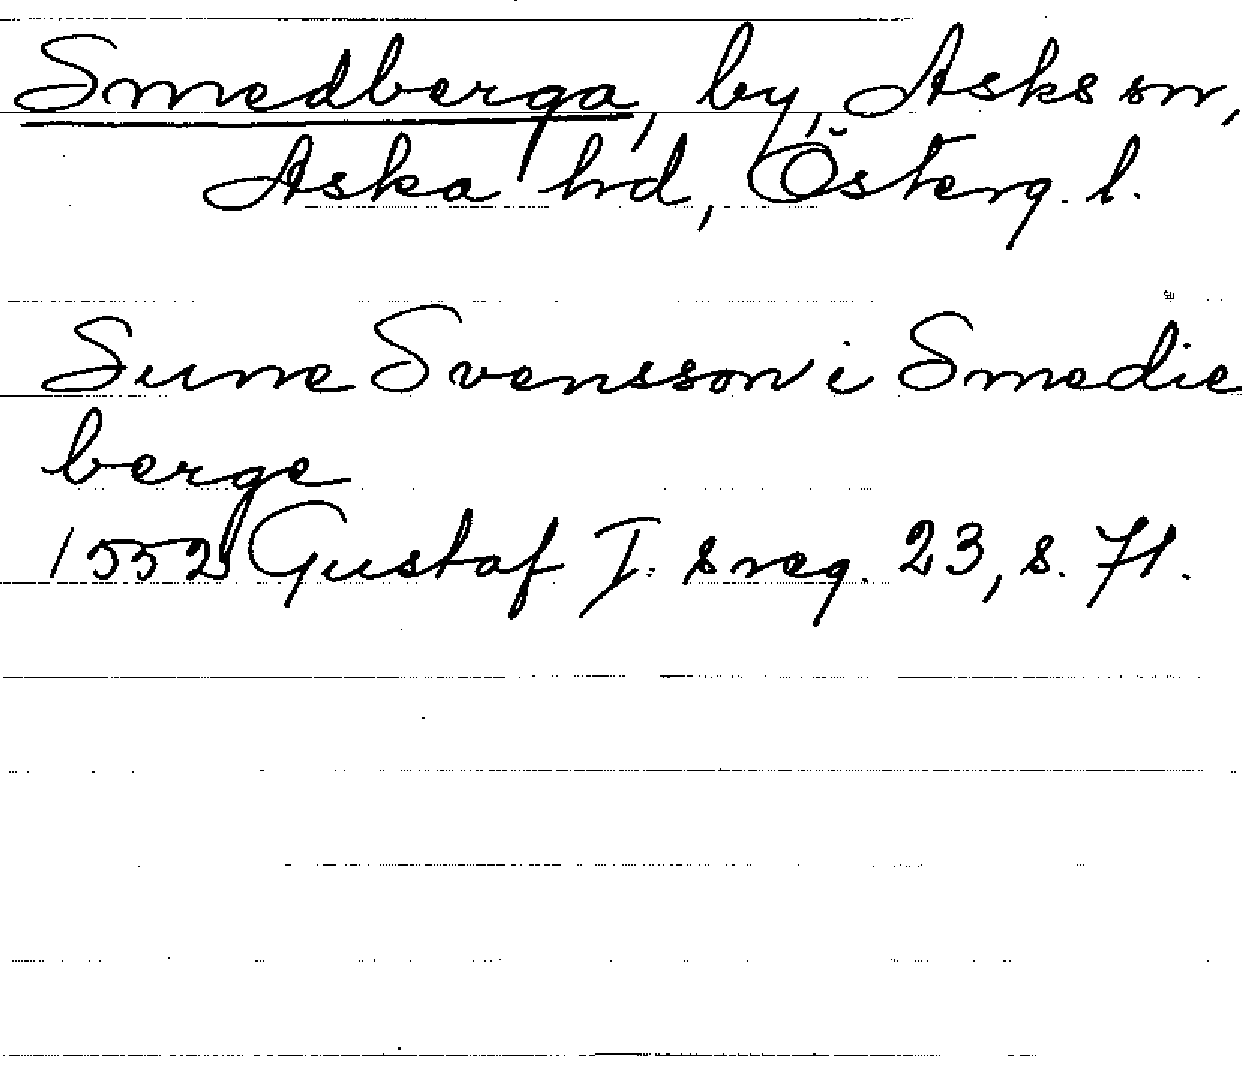 Smedberga, by, Asks sn,
Aska hd, Österg. l.
Sune Svensson i Smedie
berge
1552 Gustaf I:s reg. 23, s. 71.